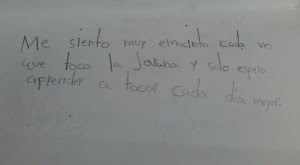 Me siento muy emocinto cada ves
que toco la Jarana y solo espero
aprender a tocar cada dia mejor.